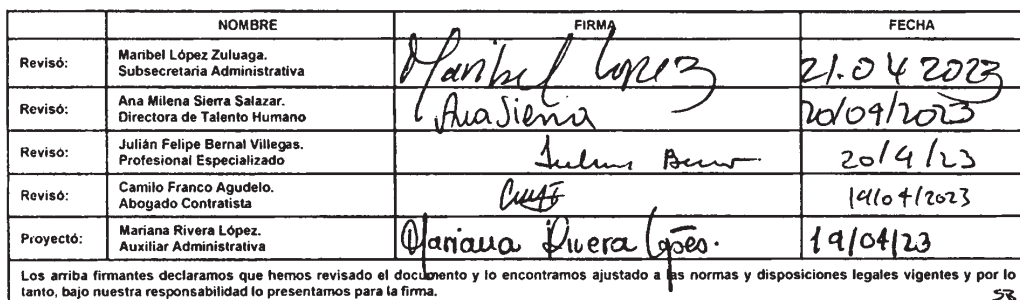 NOMBRE FIRMA FECHA
Revisó: Maribel López Zuluaga.
Subsecretaria Administrativa
Maribel Lopez 21.04 2023
Revisó: Ana Milena Sierra Salazar.
Directora de Talento Humano
Ana Sierra 20/04/2023
Revisó: Julián Felipe Bernal Villegas.
Profesional Especializado
20/4/23
Revisó: Camilo Franco Agudelo.
Abogado Contratista
19/04/2023
Proyectó: Mariana Rivera López.
Auxiliar Administrativa
Mariana Rivera López. 19/04/23
Los arriba firmantes declaramos que hemos revisado el documento y lo encontramos ajustado a las normas y disposiciones legales vigentes y por lo
tanto, bajo nuestra responsabilidad lo presentamos para la firma.